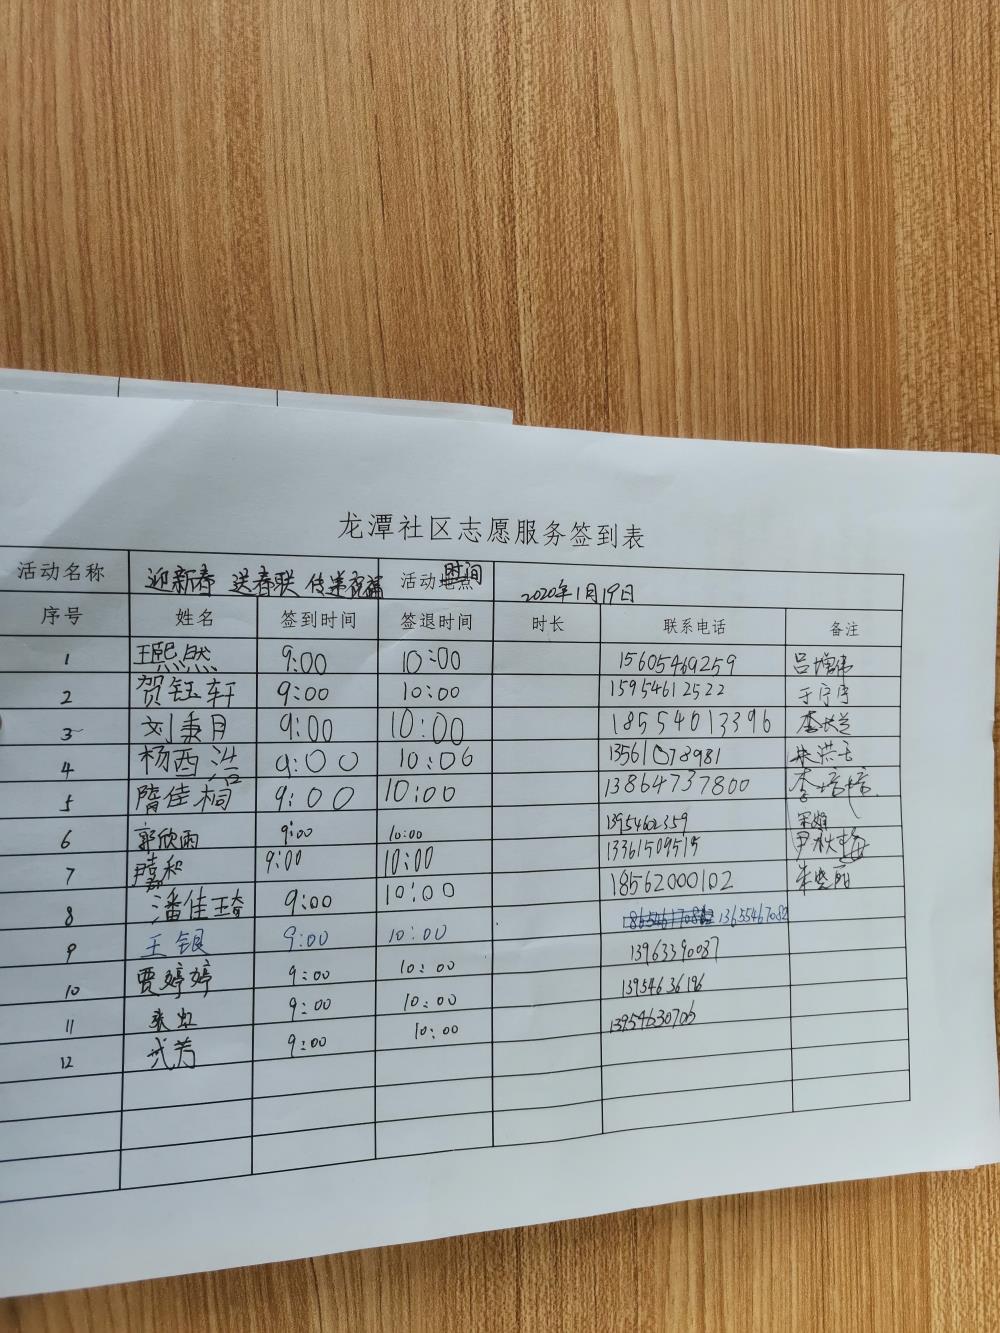 龙潭社区志愿服务签到表
活动名称 迎新春 送春联 传递祝福 活动时间 2020年1月19日
序号 姓名 签到时间 签退时间 时长 联系电话 备注
1 王熙然 9:00 10:00 15605469259 吕增伟
2 贺钰轩 9:00 10:00 15954612522 于宁宁
3 刘秉月 9:00 10:00 18554013396 李长兰
4 杨西浩 9:00 10:06 13561078981
5 隋佳桐 9:00 10:00 13864737800 李婷婷
6 郭欣雨 9:00 10:00 13954602359
7 尹嘉和 9:00 10:00 13361509515 尹秋梅
8 潘佳琦 9:00 10:00 18562000102 朱晓丽
9 王银 9:00 10:00 13655467082
10 贾婷婷 9:00 10:00 13963390037
11 张虹 9:00 10:00 13954636196
12 9:00 10:00 13954630706